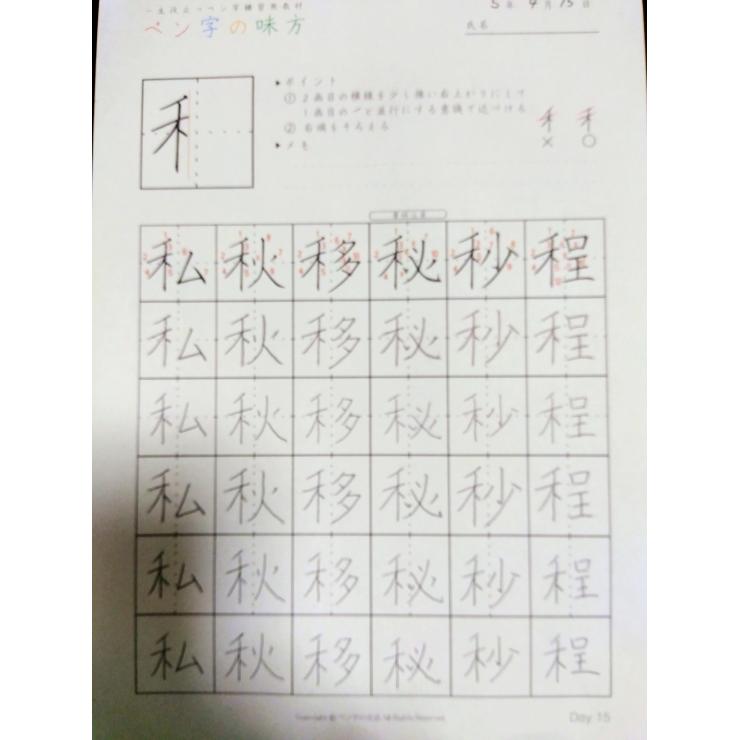 一生役立つペン字練習用教材
ペン字の味方
5年 9月 15日
氏名
禾
▶ポイント
① 2画目の横線を少し強い右上がりにして
1画目の一と並行にする意識で近づける
② 右端をそろえる
▶メモ
禾 禾
× ○
私 秋 移 秘 秒 程
私 秋 移 秘 秒 程
私 秋 移 秘 秒 程
私 秋 移 秘 秒 程
私 秋 移 秘 秒 程
私 秋 移 秘 秒 程
Copyright © ペン字の味方 All Rights Reserved.
Day 15